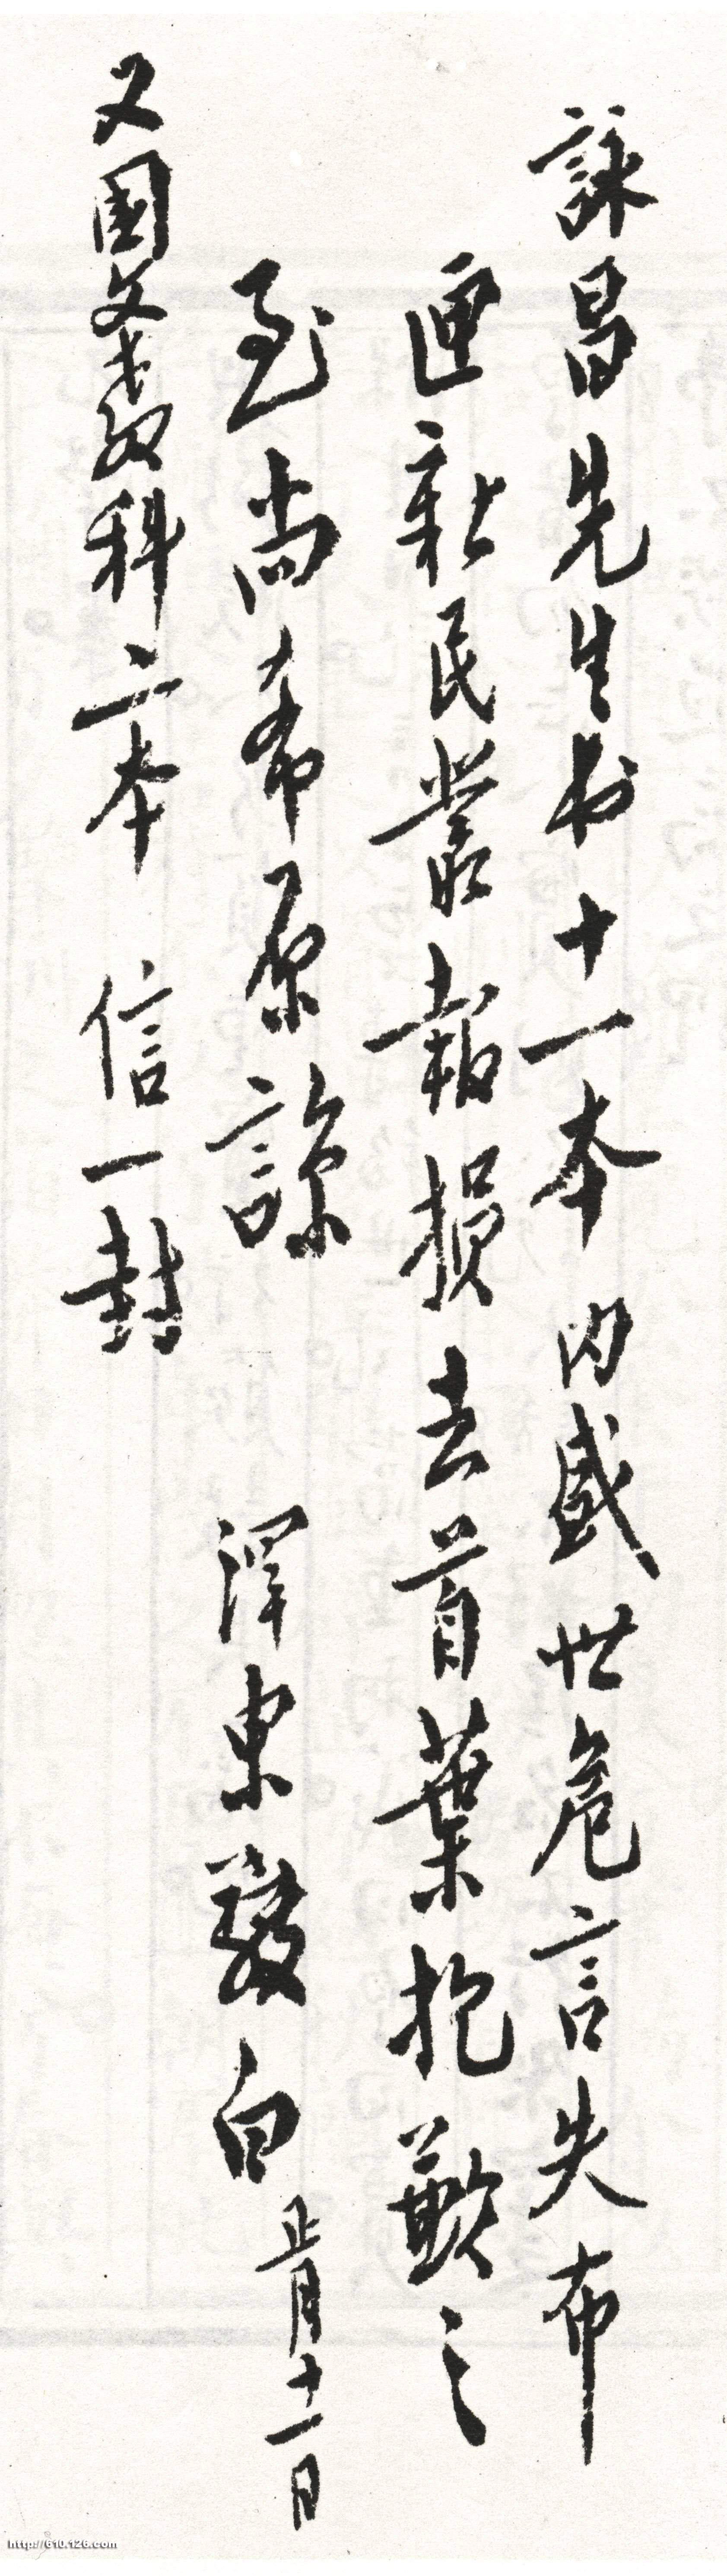 詠昌先生书十一本 内盛世危言失布
匣新民叢報損去首葉抱歉之
至尚希原諒 澤東敬白 正月十一日
又國文教科二本 信一封
http://610.126.com